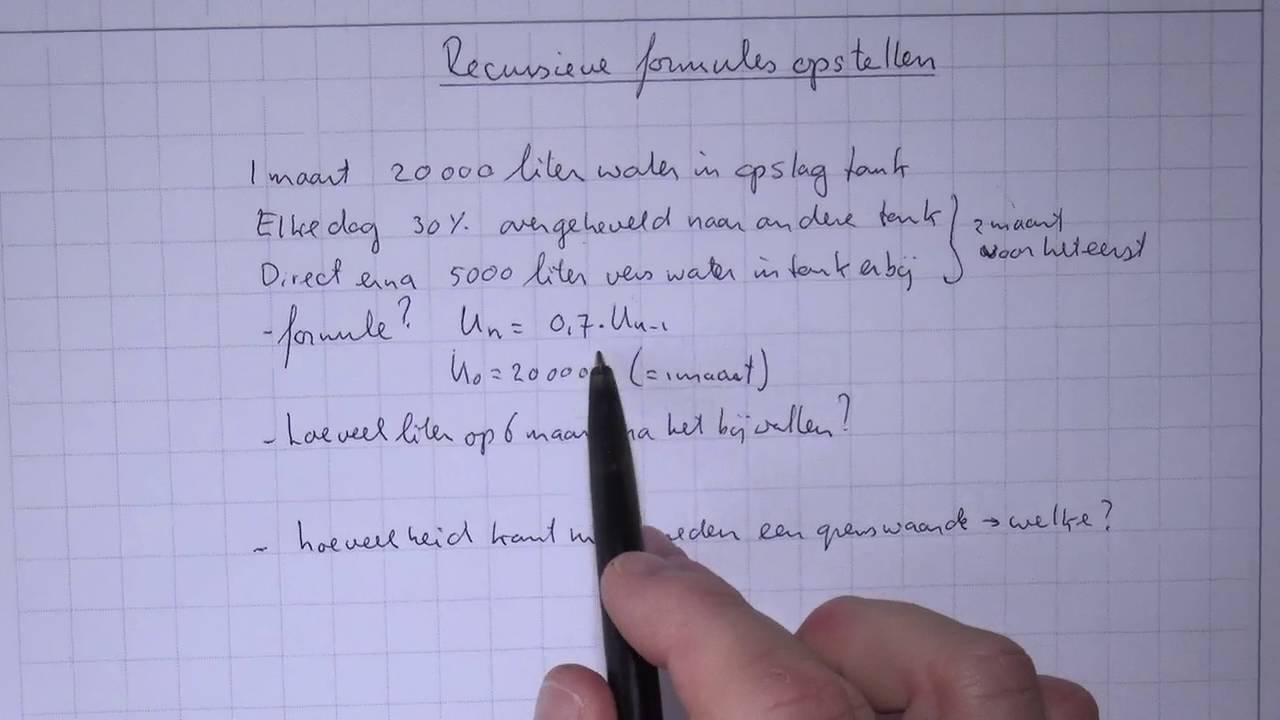 Recursieve formules opstellen
1 maart 20000 liter water in opslag tank
Elke dag 30% overgeheveld naar andere tank
Direct erna 5000 liter vers water in tank erbij
2 maart
voor het eerst
- formule? Un = 0,7·Un-1
U0 = 20000 (= 1 maart)
- hoeveel liter op 6 maart na het bijvullen?
- hoeveelheid een grenswaarde → welke?